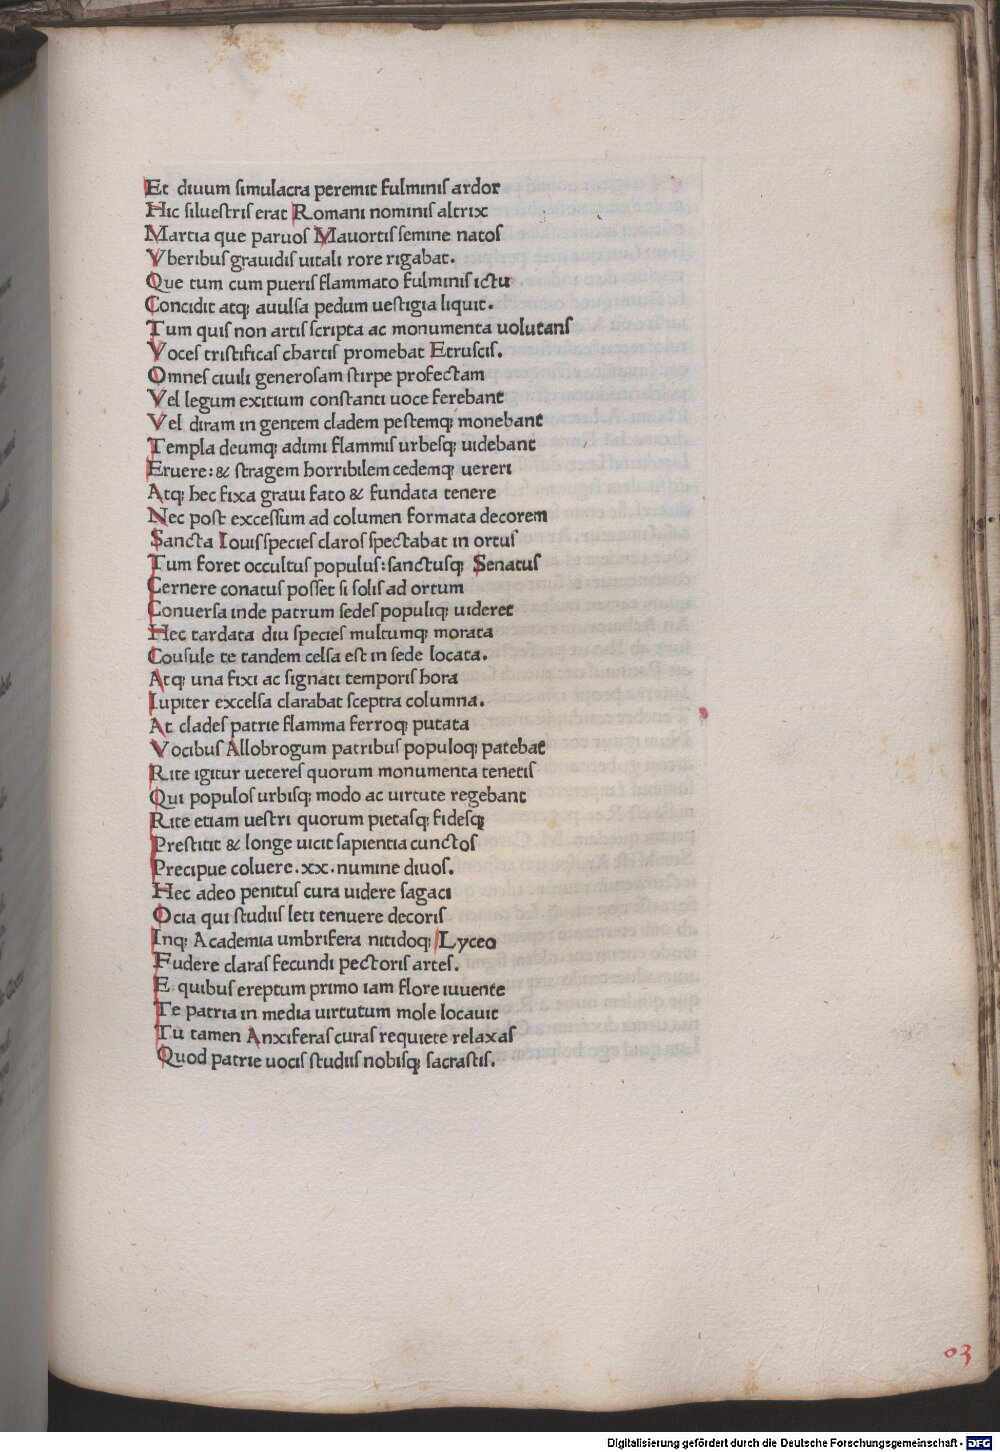 Et diuum ſimulacra peremit fulminiſ ardor
Hic ſilueſtriſ erat Romani nominiſ altrix
Martia que paruoſ Mauortiſ ſemine natoſ
Vberibuſ grauidiſ uitali rore rigabat.
Que tum cum pueriſ flammato fulminiſ ictu
Concidit atq; auulſa pedum ueſtigia liquit.
Tum quiſ non artiſ ſcripta ac monumenta uolutanſ
Voceſ triſtificaſ chartiſ promebat Etruſciſ.
Omneſ ciuili generoſam ſtirpe profectam
Vel legum exitium conſtanti uoce ferebant
Vel diram in gentem cladem peſtemq; monebant
Templa deumq; adimi flammiſ urbeſq; uidebant
Eruere: & ſtragem horribilem cedemq; uereri
Atq; hec fixa graui fato & fundata tenere
Nec poſt exceſſum ad columen formata decorem
Sancta Iouiſ ſpecieſ claroſ ſpectabat in ortuſ
Tum foret occultuſ populuſ: ſanctuſq; Senatuſ
Cernere conatuſ poſſet ſi ſoliſ ad ortum
Conuerſa inde patrum ſedeſ populiq; uideret
Hec tardata diu ſpecieſ multumq; morata
Couſule te tandem celſa eſt in ſede locata.
Atq; una fixi ac ſignati temporiſ hora
Iupiter excelſa clarabat ſceptra columna.
At cladeſ patrie flamma ferroq; putata
Vocibuſ Allobrogum patribuſ populoq; patebat
Rite igitur uetereſ quorum monumenta tenetiſ
Qui populoſ urbiſq; modo ac uirtute regebant
Rite etiam ueſtri quorum pietaſq; fideſq;
Preſtitit & longe uicit ſapientia cunctoſ
Precipue coluere.xx.numine diuoſ.
Hec adeo penituſ cura uidere ſagaci
Ocia qui ſtudiiſ leti tenuere decoriſ
Inq; Academia umbrifera nitidoq; Lyceo
Fudere claraſ fecundi pectoriſ arteſ.
E quibuſ ereptum primo iam flore iuuente
Te patria in media uirtutum mole locauit
Tu tamen Anxiferaſ curaſ requiete relaxaſ
Quod patrie uociſ ſtudiiſ nobiſq; ſacraſtiſ.
03
Digitalisierung gefördert durch die Deutsche Forschungsgemeinschaft - DFG